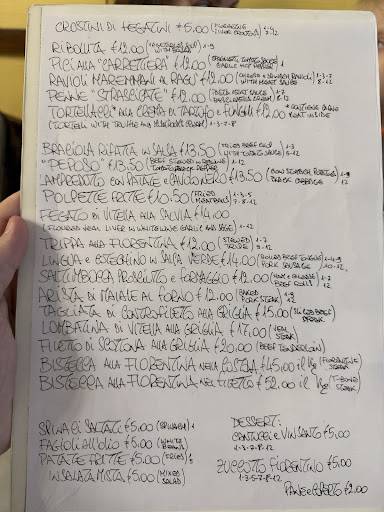 CROSTINI DI FEGATINI €5.00 (FLORENTINE LIVER CROUTON) 1-3 7-12
RIBOLLITA €12.00 (VEGETABLES SOUP WITH BREAD) 1-9
PICI ALLA "CARRETTIERA" €12.00 (TOMATO SAUCE GARLIC HOT PEPPER) 1
RAVIOLI MAREMMANI AL RAGU' €12.00 (CHEESE & SPINACH RAVIOLI WITH MEAT SAUCE) 1-3-7 8-12
PENNE "STRASCICATE" €12.00 (PASTA MEAT SAUCE PARMESAN CREAM) 1-7
TORTELLACCI ALLA CREMA DI TARTUFO E FUNGHI €12.00 * CONTIENE CARNE MEAT INSIDE
(TORTELLI WITH TRUFFLE AND MUSHROOMS CREAM) 1-3-7-8
BRACIOLA RIFATTA IN SALSA €13.50 (FRIED BEEF WITH TOMATO SAUCE) 1-3
"PEPOSO" €13.50 (BEEF STEWED IN RED WINE TOMATO BLACK PEPPER) 1-12
LAMPREDOTTO CON PATATE E CAVOLO NERO €13.50 (COW STOMACH POTATOES BLACK CABBAGE) 1-9 12
POLPETTE FRITTE €10.50 (FRIED MEATBALLS) 1-3-5 7-8-12
FEGATO DI VITELLA ALLA SALVIA €14.00
(FLOURED VEAL LIVER WITH WHITE WINE GARLIC AND SAGE) 1-12
TRIPPA ALLA FIORENTINA €12.00 (STEWED TRIPE) 1-7 9-12
LINGUA E COTECHINO IN SALSA VERDE €14.00 (BOILED BEEF TONGUE PORK SAUSAGE)
SALTIMBOCCA PROSCIUTTO E FORMAGGIO €12.00 (HAM & CHEESE BEEF ROLLS) 1-7 12
ARISTA DI MAIALE AL FORNO €12.00 (BAKED PORK STEAK)
TAGLIATA DI CONTROFILETTO ALLA GRIGLIA €15.00 (SLICED BEEF STEAK)
LOMBATINA DI VITELLA ALLA GRIGLIA €17.00 (VEAL STEAK)
FILETTO DI SCOTTONA ALLA GRIGLIA €20.00 (BEEF TENDERLOIN)
BISTECCA ALLA FIORENTINA NELLA COSTOLA €45.00 IL Kg (FLORENTINE STEAK)
BISTECCA ALLA FIORENTINA NEL FILETTO €52.00 IL Kg (T-BONE STEAK)
SPINACI SALTATI €5.00 (SPINACH)
FAGIOLI ALL'OLIO €5.00 (WHITE BEANS)
PATATE FRITTE €5.00 (FRIES) 5
INSALATA MISTA €5.00 (MIXED SALAD)
DESSERT:
CANTUCCI E VIN SANTO €5,00
1-3-7-8-12
ZUCCOTTO FIORENTINO €5.00
1-3-5-7-8-12
PANE E COPERTO €2.00